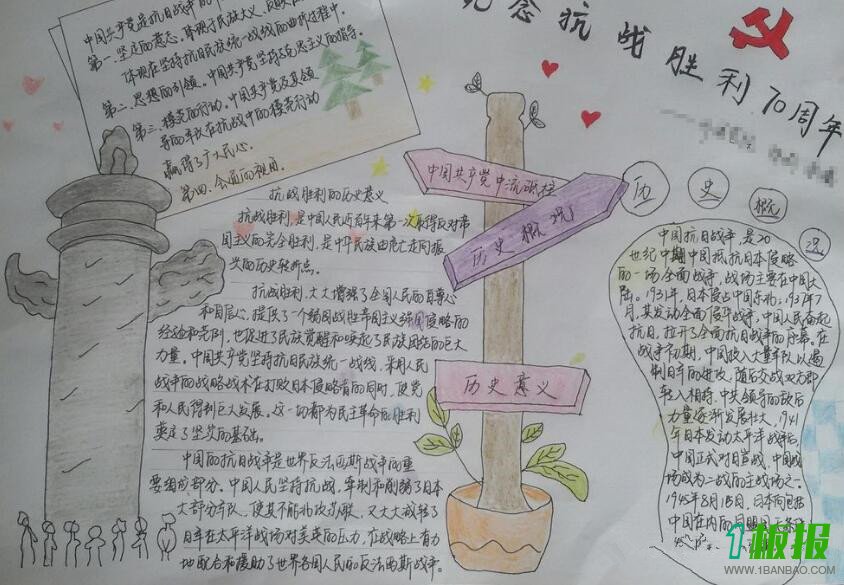 纪念抗战胜利70周年
中国共产党是抗日战争的中
第一、坚定的意志。体现了民族大义、
体现在坚持抗日民族统一战线的曲折过程中。
第二、思想的引领。中国共产党坚持马克思主义的指导。
第三、模范的行动。中国共产党及其领
导的军队在抗战中的模范行动
赢得了广大民心。
第四、
抗战胜利的历史意义
抗战胜利,是中国人民近百年来第一次取得反对帝
国主义的完全胜利,是中华民族由危亡走向振
兴的历史转折点。
抗战胜利,大大增强了全国人民的自尊心
和自信心,提供了一个弱国战胜帝国主义强国侵略的
经验和范例,也促进了民族觉醒和唤起了民族团结的巨大
力量。中国共产党坚持抗日民族统一战线,采用人民
战争的战略战术在打败日本侵略者的同时,使党
和人民得到巨大发展。这一切都为民主革命的胜利
奠定了坚实的基础。
中国的抗日战争是世界反法西斯战争的重
要组成部分。中国人民坚持抗战,牵制和削弱了日本
大部分军队,使其不能北攻苏联,又大大减轻了
日军在太平洋战场对美英的压力,在战略上有力
地配合和援助了世界各国人民的反法西斯战争。
中国共产党中流砥柱
历史概况
历史意义
历史概况
中国抗日战争,是20
世纪中期中国抵抗日本侵略
的一场全面战争,战场主要在中国大
陆。1931年,日本侵占中国东北;1937年7
月,其发动全面侵华战争,中国人民奋起
抗日,拉开了全面抗日战争的序幕。在
战争初期,中国投入大量军队以遏
制日军的进攻,随后交战双方即
转入相持。中共领导的敌后
力量逐渐发展壮大,1941
年日本发动太平洋战争后,
中国正式对日宣战,中国战
场成为二战的主战场之一。
1945年8月15日,日本向包括
中国在内的同盟国无条件
1板报
WWW.1BANBAO.COM